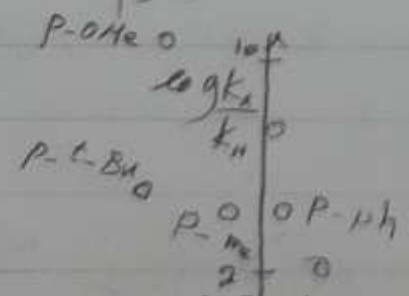 P-OMe
10
log kx
kH
P-t-Bu
P-Me
P-ph
2